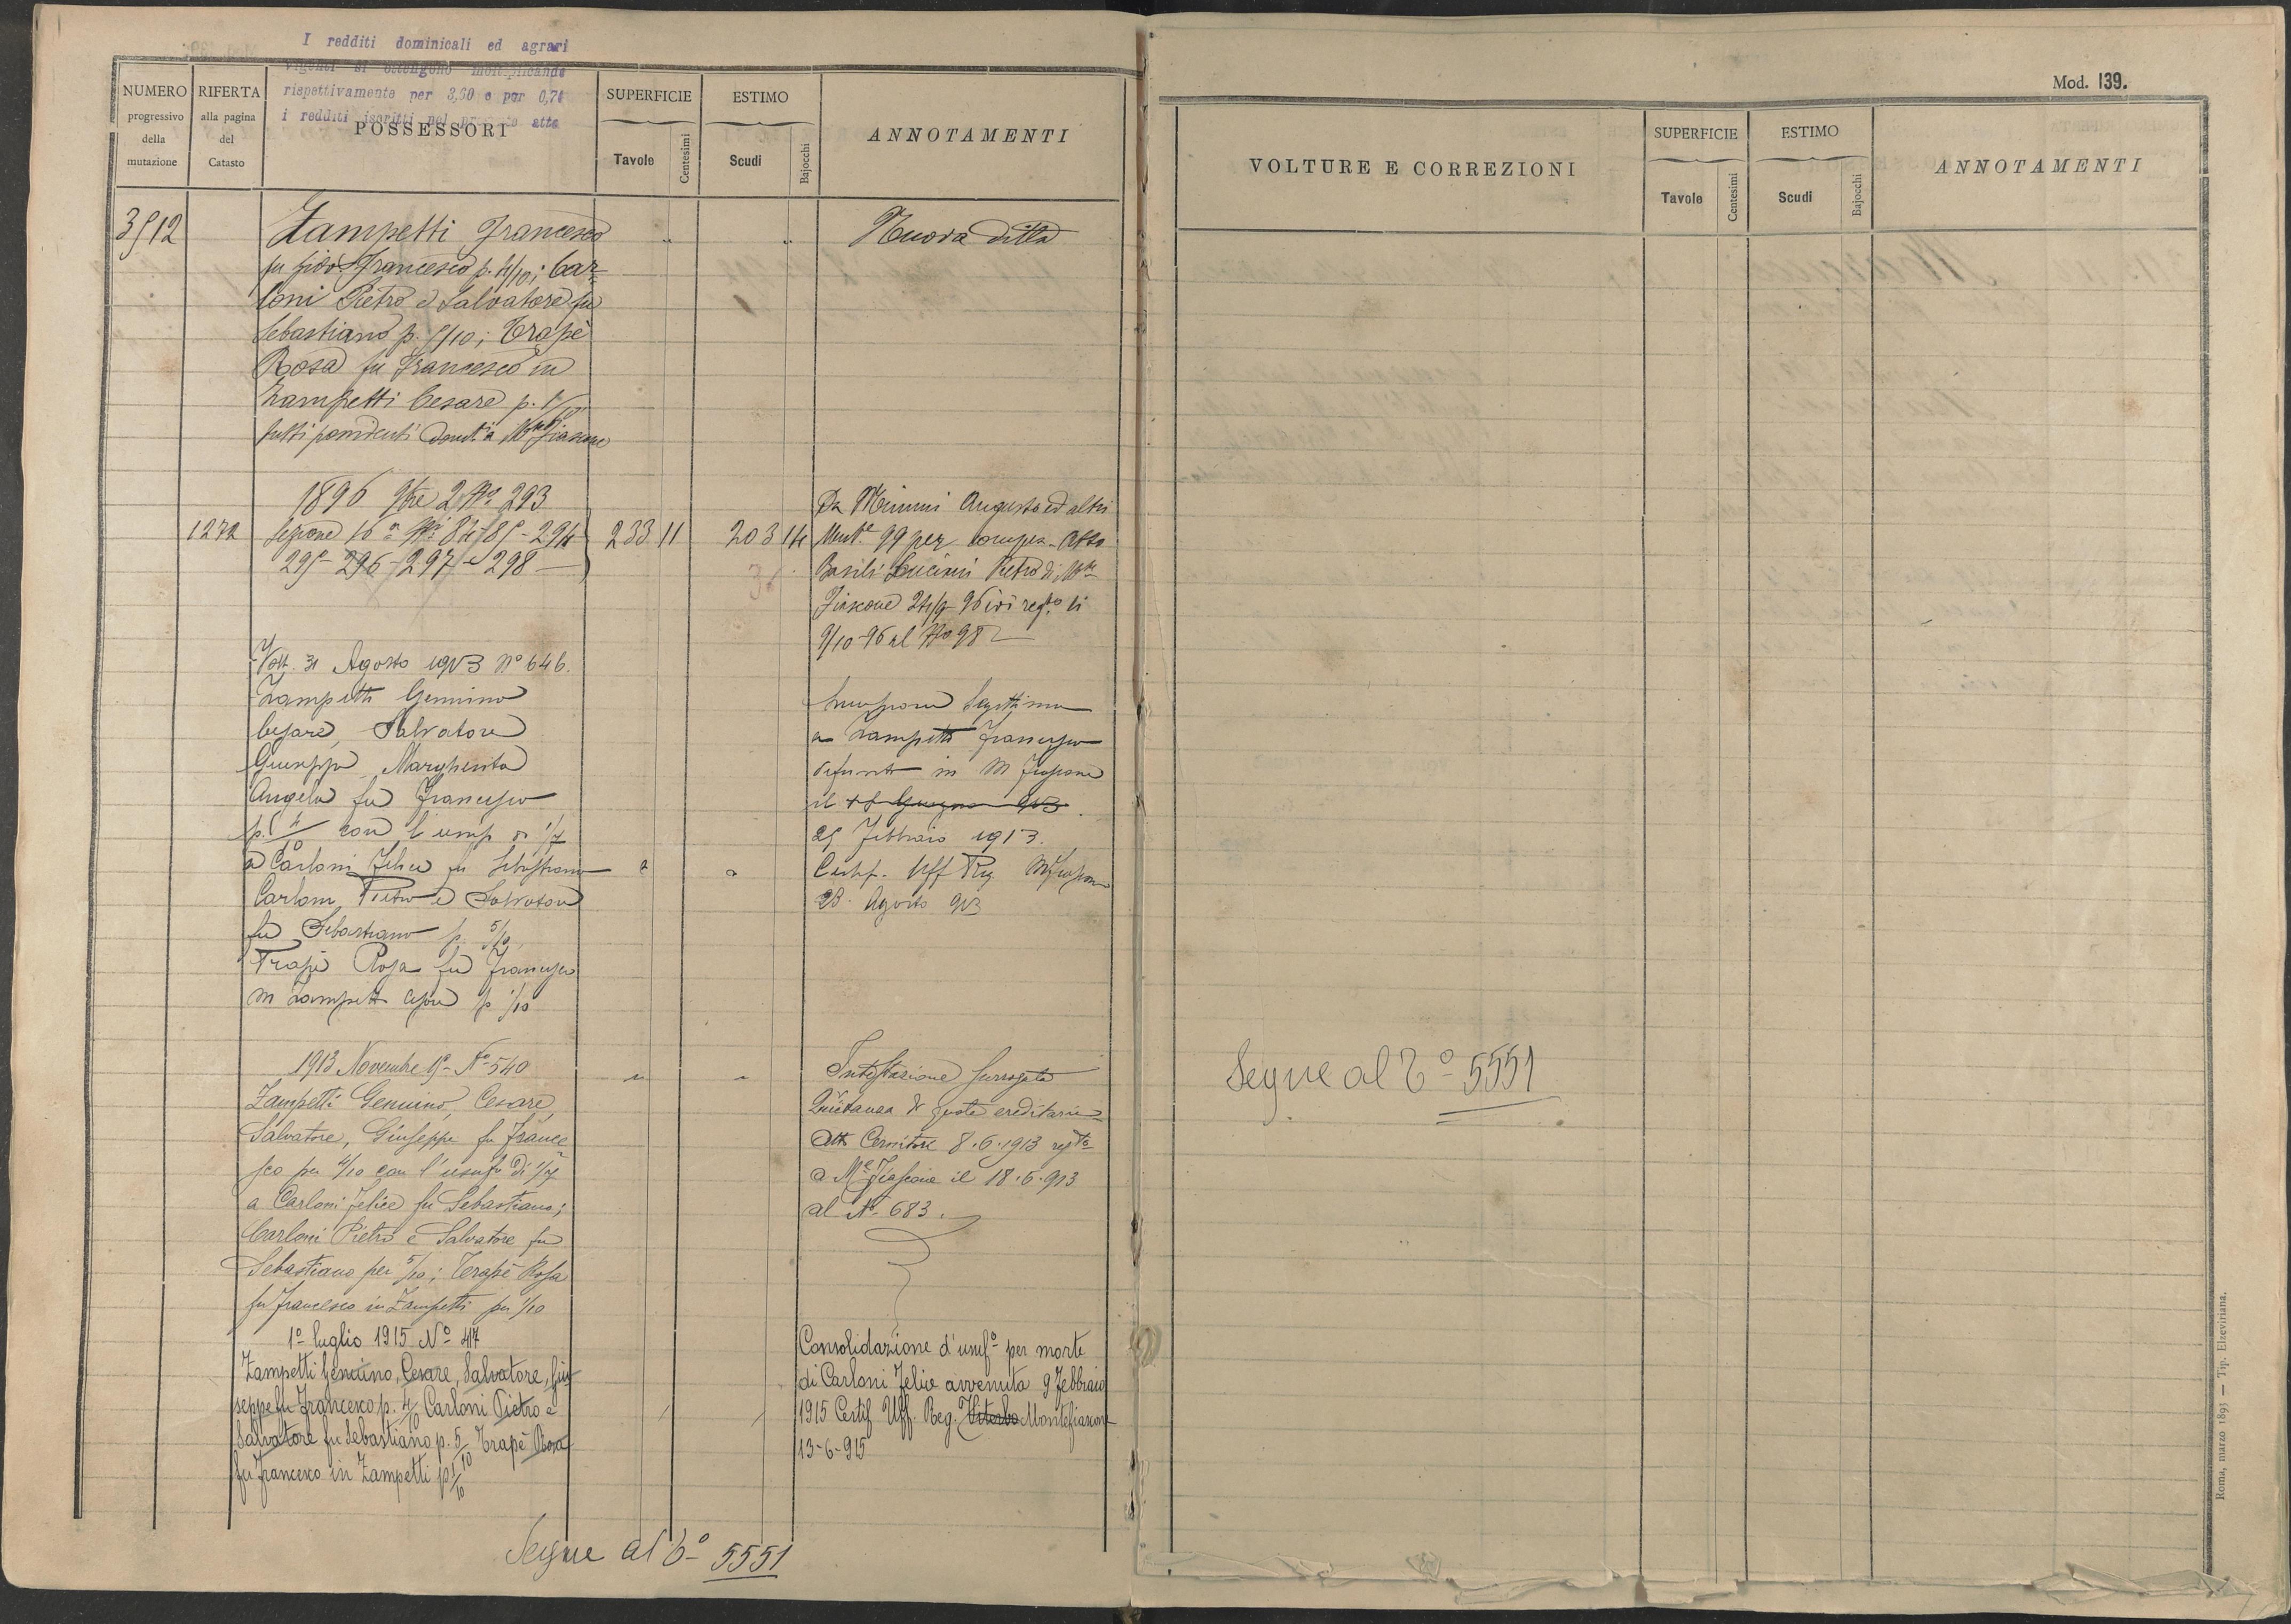 I redditi dominicali ed agrari
vigenti si ottengono moltiplicando
rispettivamente per 3,60 e per 0,70
i redditi iscritti nel presente atto
NUMERO progressivo della mutazione
RIFERTA alla pagina del Catasto
POSSESSORI
SUPERFICIE
Tavole
Centesimi
ESTIMO
Scudi
Bajocchi
ANNOTAMENTI
3512
Zampetti Francesco
fu Francesco p. 4/10; Car-
loni Pietro e Salvatore fu
Sebastiano p. 5/10; Trapè
Rosa fu Francesco in
Zampetti Cesare p. 1/10
tutti possidenti
Nuova ditta
1896 9bre 2 No 293
1272
Sezione 10a Ni 84-85-294
295-296-297-298
233 11
203 14
Da Augusto ed altri
99 per Atto
Basili Pietro di Mte
Fiascone 24/9 96 ivi regto li
9/10-96 al No 98
Volt. 31 Agosto 1913 No 646.
Zampetti Genuino
Cesare, Salvatore
Giuseppe Margherita
Angela fu Francesco
p. 4/10 con l'usuf di 1/7
a Carloni Felice fu Sebastiano
Carloni Pietro e Salvatore
fu Sebastiano p. 5/10
Trapè Rosa fu Francesco
in Zampetti Cesare p 1/10
Successione legittima
a Zampetti Francesco
defunto in M Fiascone
il Giugno 913
25 Febbraio 1913.
Certif. Uff Reg. Mfiascone
23 Agosto 913
1913 Novembre 19 - No 540
Zampetti Genuino, Cesare,
Salvatore, Giuseppe fu France
sco per 4/10 con l'usufo di 1/7
a Carloni Felice fu Sebastiano;
Carloni Pietro e Salvatore fu
Sebastiano per 5/10; Trapè Rosa
fu Francesco in Zampetti per 1/10
Intestazione surrogata
Quietanza di quote ereditarie
Atto 8.6.1913 regto
a Mte Fiascone il 18.6.913
al No 683.
1o luglio 1915 No 417
Zampetti Genuino, Cesare, Salvatore, Giu
seppe fu Francesco p. 4/10 Carloni Pietro e
Salvatore fu Sebastiano p. 5/10 Trapè Rosa
fu Francesco in Zampetti p 1/10
Consolidazione d'usufo per morte
di Carloni Felice avvenuta 9 Febbraio
1915 Certif Uff. Reg. Viterbo Montefiascone
13-6-915
Segue al To 5551
Mod. 139.
VOLTURE E CORREZIONI
SUPERFICIE
Tavole
Centesimi
ESTIMO
Scudi
Bajocchi
ANNOTAMENTI
Segue al To 5551
Roma, marzo 1893 — Tip. Elzeviriana.